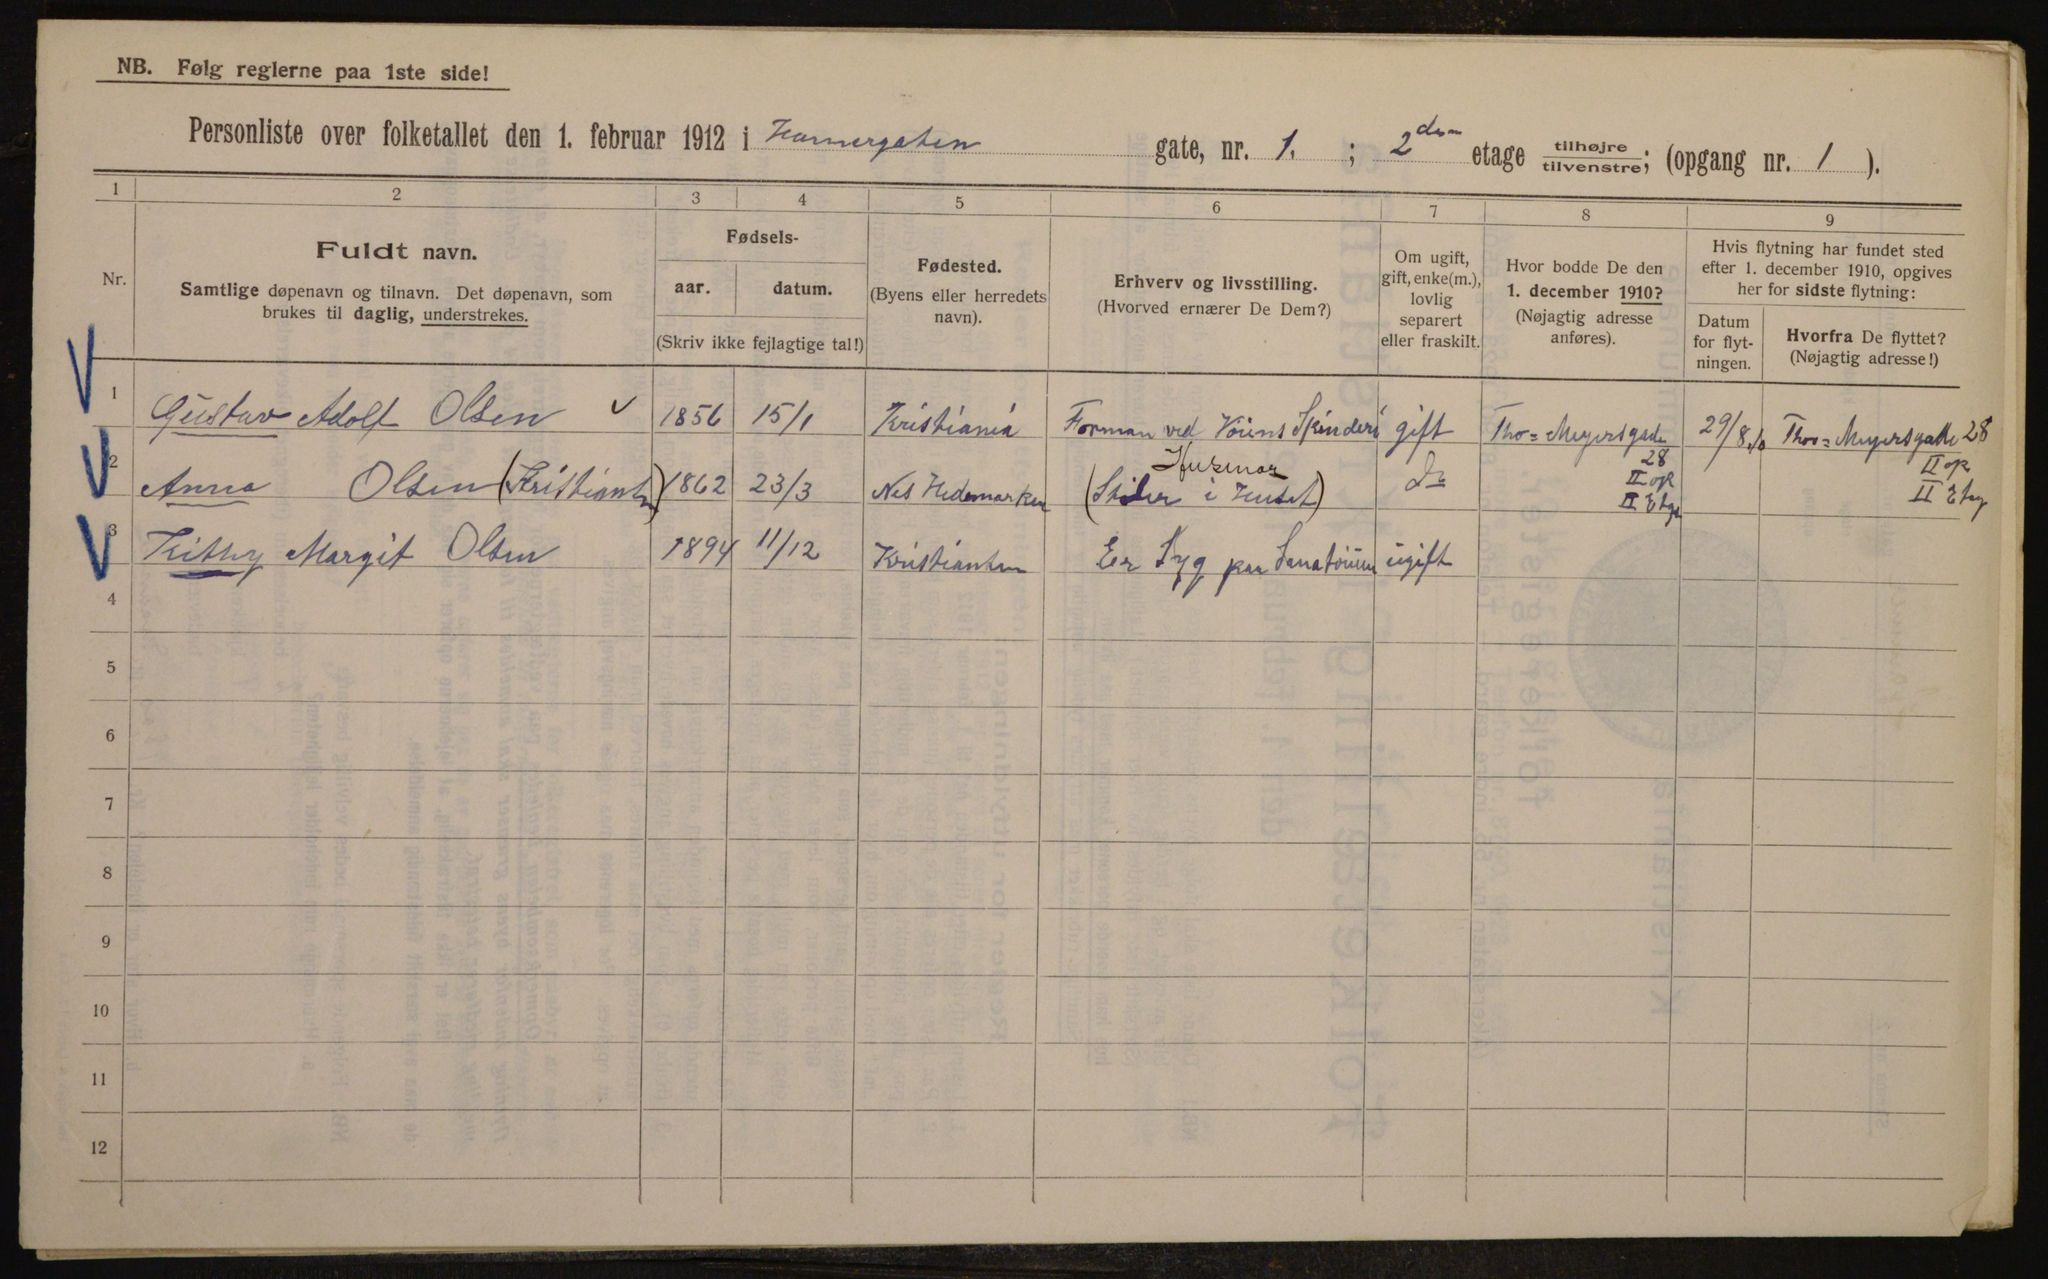 NB. Følg reglerne paa 1ste side!
Personliste over folketallet den 1. februar 1912 i gate, nr. 1. ; 2den etage tilhøjre/tilvenstre; (opgang nr. 1 ).
1 2 3 4 5 6 7 8 9
Nr.
Fuldt navn.
Samtlige døpenavn og tilnavn. Det døpenavn, som
brukes til daglig, understrekes.
Fødsels-
aar. datum.
(Skriv ikke fejlagtige tal!)
Fødested.
(Byens eller herredets
navn).
Erhverv og livsstilling.
(Hvorved ernærer De Dem?)
Om ugift,
gift, enke(m.),
lovlig
separert
eller fraskilt.
Hvor bodde De den
1. december 1910?
(Nøjagtig adresse
anføres).
Hvis flytning har fundet sted
efter 1. december 1910, opgives
her for sidste flytning:
Datum
for flyt-
ningen.
Hvorfra De flyttet?
(Nøjagtig adresse!)
1 Gustav Adolf Olsen 1856 15/1 Kristiania Forman ved Vøiens Spinderi gift Tho= Meyersgade 28 II op II Etge 29/8 10 Tho= Meyersgatte 28 II op II Etg
2 Anna Olsen 1862 23/3 Nes Hedemarken Husmor (Steler i Huset) Do
3 Margit Olsen 1894 11/12 Er Syg paa Sanatorium ugift
4
5
6
7
8
9
10
11
12